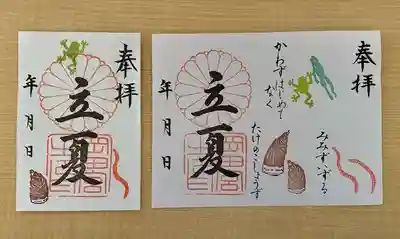 奉拝
立夏
年 月 日
奉拝
かわずはじめて
なく
みみずいずる
たけのこしょうず
立夏
年 月 日